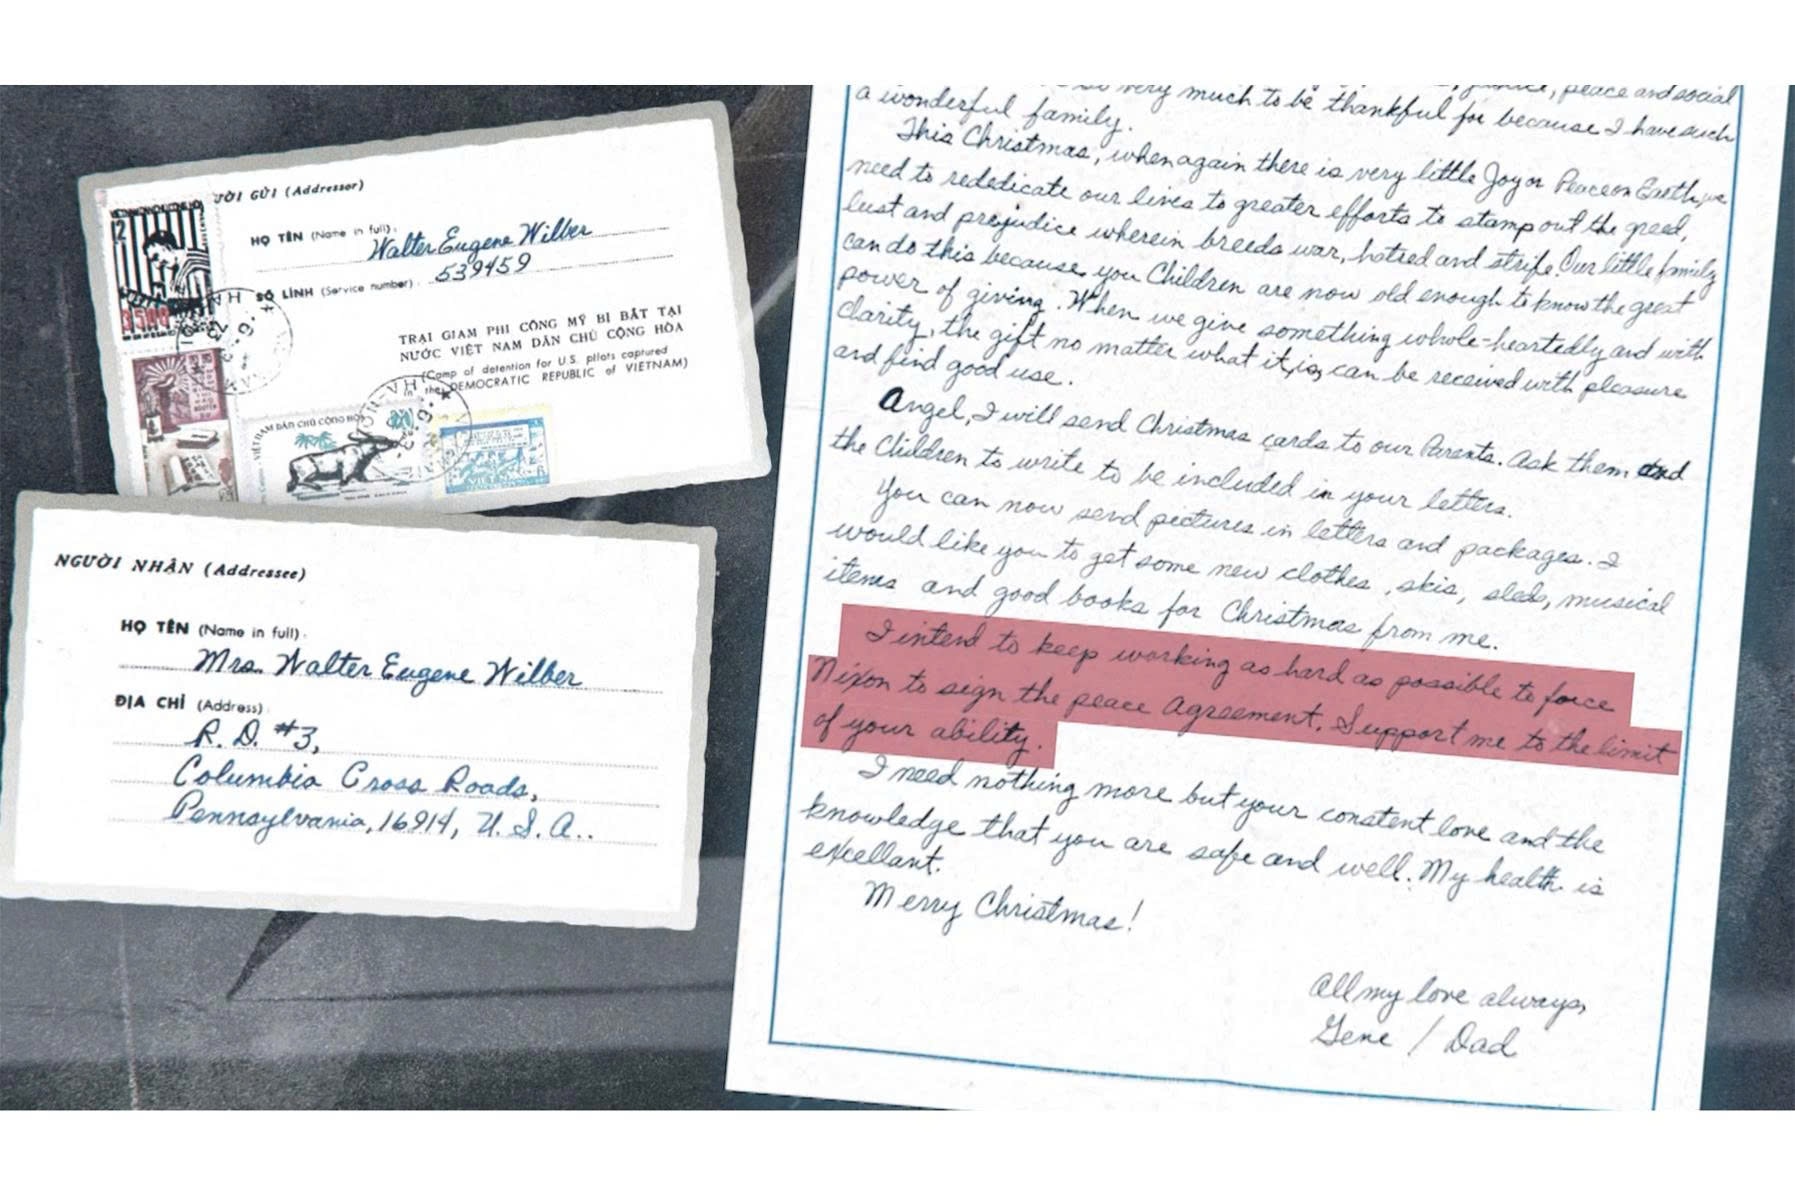 ƯỜI GỬI (Addressor)
HỌ TÊN (Name in full):
Walter Eugene Wilber
SỐ LÍNH (Service number).
539459
TRẠI GIAM PHI CÔNG MỸ BỊ BẮT TẠI
NƯỚC VIỆT NAM DÂN CHỦ CỘNG HÒA
(Camp of detention for U.S. pilots captured
in the DEMOCRATIC REPUBLIC of VIETNAM)
12
3500
VIỆT NAM DÂN CHỦ CỘNG HÒA
20
VIỆT NAM
NGƯỜI NHẬN (Addressee)
HỌ TÊN (Name in full).
Mrs. Walter Eugene Wilber
ĐỊA CHỈ (Address).
R. D. #3,
Columbia Cross Roads,
Pennsylvania, 16914, U. S. A..
peace and social
very much to be thankful for because I have such
a wonderful family.
This Christmas, when again there is very little Joy or Peace on Earth, we
need to rededicate our lives to greater efforts to stamp out the greed,
lust and prejudice wherein breeds war, hatred and strife. Our little family
can do this because you Children are now old enough to know the great
power of giving. When we give something whole-heartedly and with
clarity, the gift no matter what it is, can be received with pleasure
and find good use.
Angel, I will send Christmas cards to our Parents. Ask them and
the Children to write to be included in your letters.
You can now send pictures in letters and packages. I
would like you to get some new clothes, skis, sleds, musical
items and good books for Christmas from me.
I intend to keep working as hard as possible to force
Nixon to sign the peace Agreement. Support me to the limit
of your ability.
I need nothing more but your constent love and the
knowledge that you are safe and well. My health is
excellant.
Merry Christmas!
All my love always,
Gene / Dad